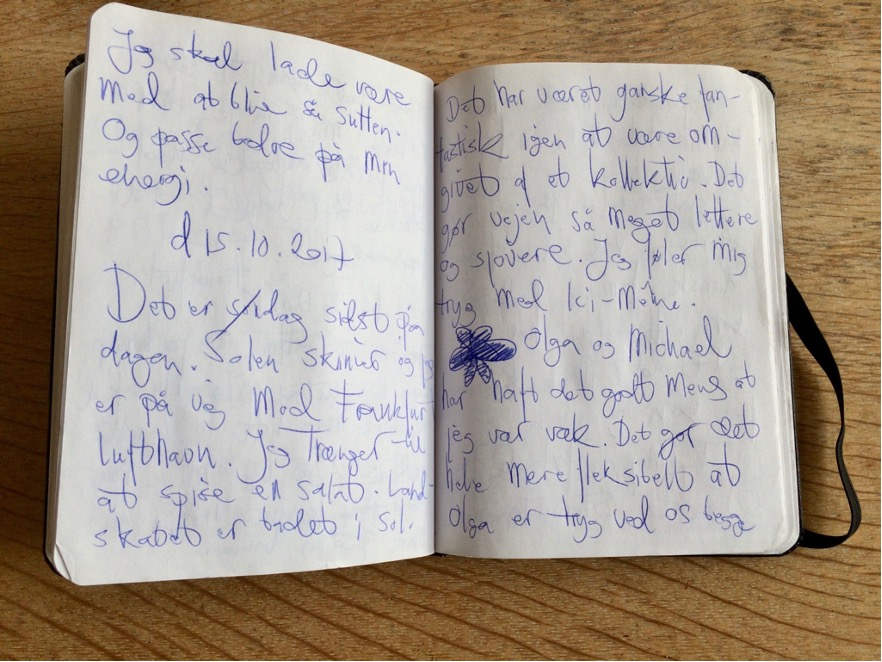 Jeg skal lade være
Med at blive så sulten.
Og passe bedre på min
energi.
d 15.10.2017
Det er søndag sidst på
dagen. Solen skinner og jeg
er på vej Mod Frankfurt
lufthavn. Jeg Trænger til
at spise en salat. Land-
skabet er badet i sol.
Det har været ganske fan-
tastisk igen at være om-
givet af et kollektiv. Det
gør vejen så meget lettere
og sjovere. Jeg føler mig
tryg Med
Olga og Michael
har haft det godt Mens at
jeg var væk. Det gør det
hele mere fleksibelt at
Olga er tryg ved os begge